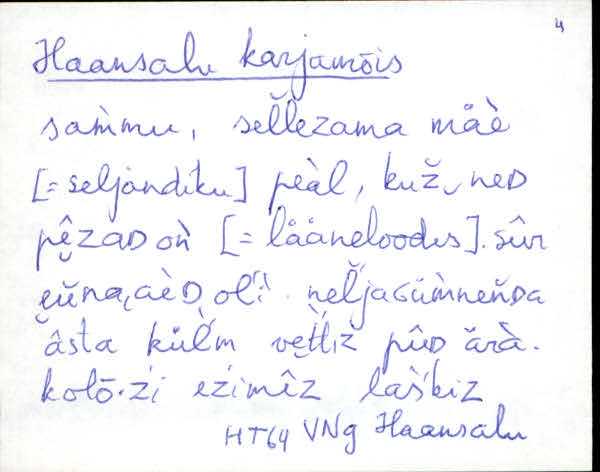 4
Haansalu karjamõis
sam̀mu, sel̆l̆ezama måè
[= seljandiku] peàl, kuž neᴅ
pêzaᴅ oǹ [= lääneloodes]. sûr
eŭna,aèᴅ ol'i neĺjaɢüm̀neňᴅa
âsta kùĺm vet̆t̆iz pûᴅ ärà.
kolō·zi ezimîz laśkiz
HT64 VNg Haansalu